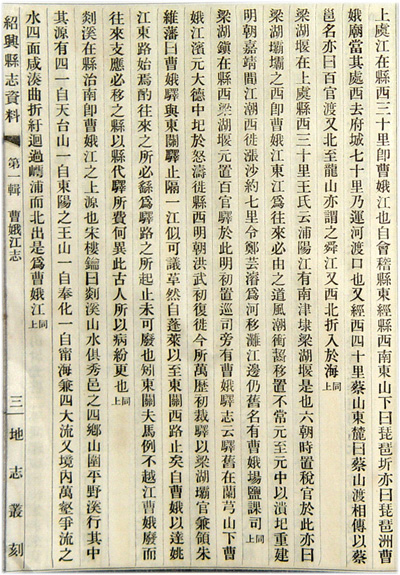 上虞江在縣西三十里卽曹娥江也自會稽縣東經縣西南東山下曰琵琶圻亦曰琵琶洲曹
娥廟當其處西去府城七十里乃運河渡口也又經西四十里蔡山東麓曰蔡山渡相傳以蔡
邕名亦曰百官渡又北至龍山亦謂之舜江又西北折入於海同上
梁湖堰在上虞縣西三十里王氏云浦陽江有南津埭梁湖堰是也六朝時置稅官於此亦曰
梁湖壩壩之西卽曹娥江東江爲往來必由之道風潮衝嚙移置不常元至元中以潰圮重建
明朝嘉靖間江潮西徙漲沙約七里令鄭芸濬爲河移灘江邊仍舊名有曹娥場鹽課司同上
梁湖鎭在縣西梁湖堰元置百官驛於此明初置巡司旁有曹娥驛志云驛舊在蘭芎山下曹
娥江濱元大德中圮於怒濤徙縣西明朝洪武初復徙今所萬歷初裁驛以梁湖壩官兼領朱
維藩曰曹娥驛與東關驛止隔一江似可議革然自蓬萊以至東關西路止矣自曹娥以達姚
江東路始焉酌往來之所必繇爲驛路之所起止未可廢也矧東關夫馬例不越江曹娥廢而
往來支應必移之縣以縣代驛所費何異此古人所以病紛更也同上
剡溪在縣治南卽曹娥江之上源也宋樓鑰曰剡溪山水俱秀邑之四鄕山圍平野溪行其中
其源有四一自天台山一自東陽之玉山一自奉化一自甯海兼四大流又境內萬壑爭流之
水四面咸湊曲折紆迴過嶀浦而北出是爲曹娥江同上
紹興縣志資料 第一輯 曹娥江志 三 地志叢刻